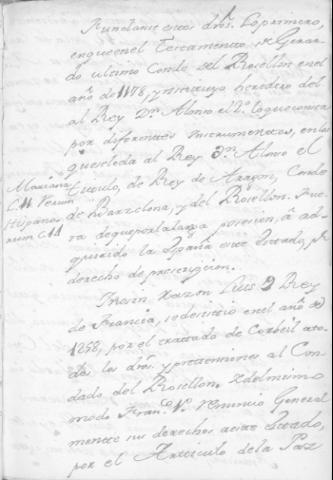 Fundanse estos drs. Lo primero,
en que en el Testamento de Gerar-
do ultimo Conde del Rosellon en el
año de 1178, instituyo heredero del
al Rey Dn. Alonso el 2º. lo que consta
por diferentes instrumentos, en los
que se le da al Rey Dn. Alonso el
titulo, de Rey de Aragon, Conde
de Barzelona, y del Rosellon. Fue-
ra de que por la larga posesion, à ad-
quirido la España este Estado, pr.
derecho de prescripcion.
Mariana
L. 11
Hispania
rum C. 14
razon Luis 9 Rey
de Francia, en el año de
1258, por el tratado de Corbeil a to-
dos los drs. y pretensiones al Con-
dado del Rosellon. Del mismo
modo Fran.co renuncio General
mente sus derechos a este Estado,
por el Articulo de la Paz